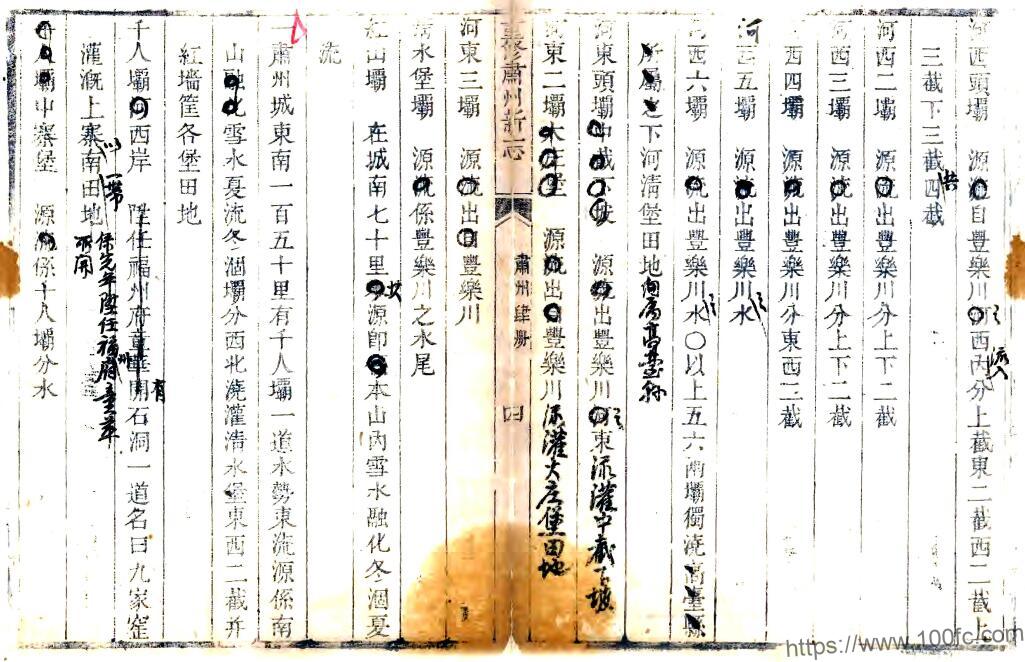 河西頭壩 源 自豐樂川 河西內分上截東二截西二截上
三截下三截 共 四截
河西二壩 源 出豐樂川分上下二截
河西三壩 源 出豐樂川分上下二截
河西四壩 源 出豐樂川分東西二截
河西五壩 源 出豐樂川水
河西六壩 源 出豐樂川水○以上五六兩壩獨澆高臺縣
所屬之下河清堡田地 向屬高臺縣
河東頭壩中截下坡 源 出豐樂川 河東 添灌中截下坡
河東二壩大庄堡 源 出自豐樂川 添灌大庄堡田地
重修肅州新志 肅州肆册 四
河東三壩 源 出自豐樂川
清水堡壩 源流係豐樂川之水尾
紅山壩 在城南七十里 水源即 本山內雪水融化冬涸夏
流
一肅州城東南一百五十里有千人壩一道水勢東流源係南
山融化雪水夏流冬涸壩分西北澆灌清水堡東西二截并
紅墻筐各堡田地
千人壩河西岸 陞任福州府童華開石洞一道名曰九家窑
灌溉上寨南田地 一帶 係先年陞任福州府童華 所開
千人壩中寨堡 源流係千人壩分水
https://www.100fc.com